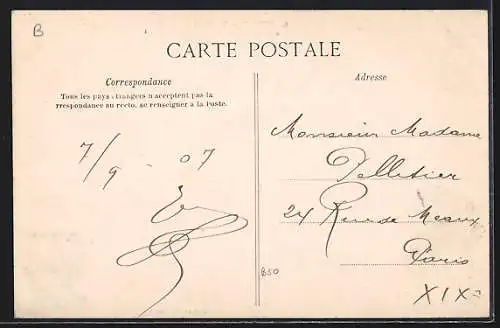 B
CARTE POSTALE
Correspondance
Tous les pays étrangers n'acceptent pas la
rrespondance au recto, se renseigner à la Poste.
7/9 - 07
Adresse
Monsieur Madame
Pelletier
24 Rue de Meaux
Paris
XIXe
850